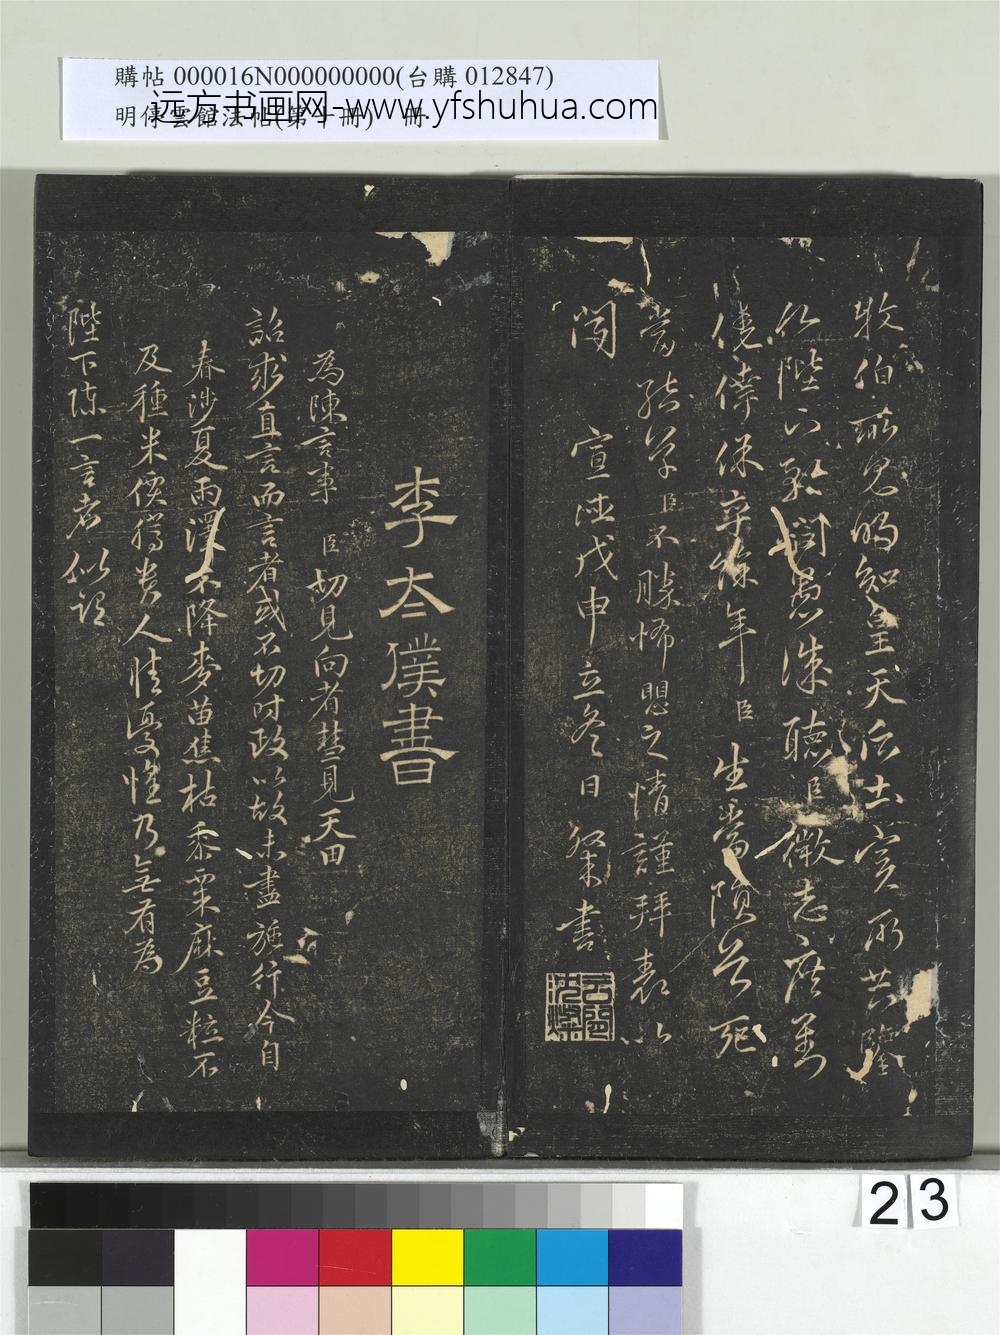 購帖 000016N000000000(台購 012847)
明停雲館法帖(第十冊) 冊
远方书画网-www.yfshuhua.com
牧伯所見明知皇天后土實所共鑒
伏陛下矜閔愚誠聽臣微志庶劉
僥倖保卒餘年臣生當隕首死
當結草臣不勝怖懼之情謹拜表以
聞
宣德戊申立冬日粲書
雲間沈粲
李太僕書
為陳言事臣切見向者彗見天田
詔求直言而言者或不切時政以故未盡施行今自
春涉夏雨澤不降麥苗焦枯黍粟麻豆粒不
及種米價騰贵人情憂惟乃無有為
陛下陳一言者似誤
23